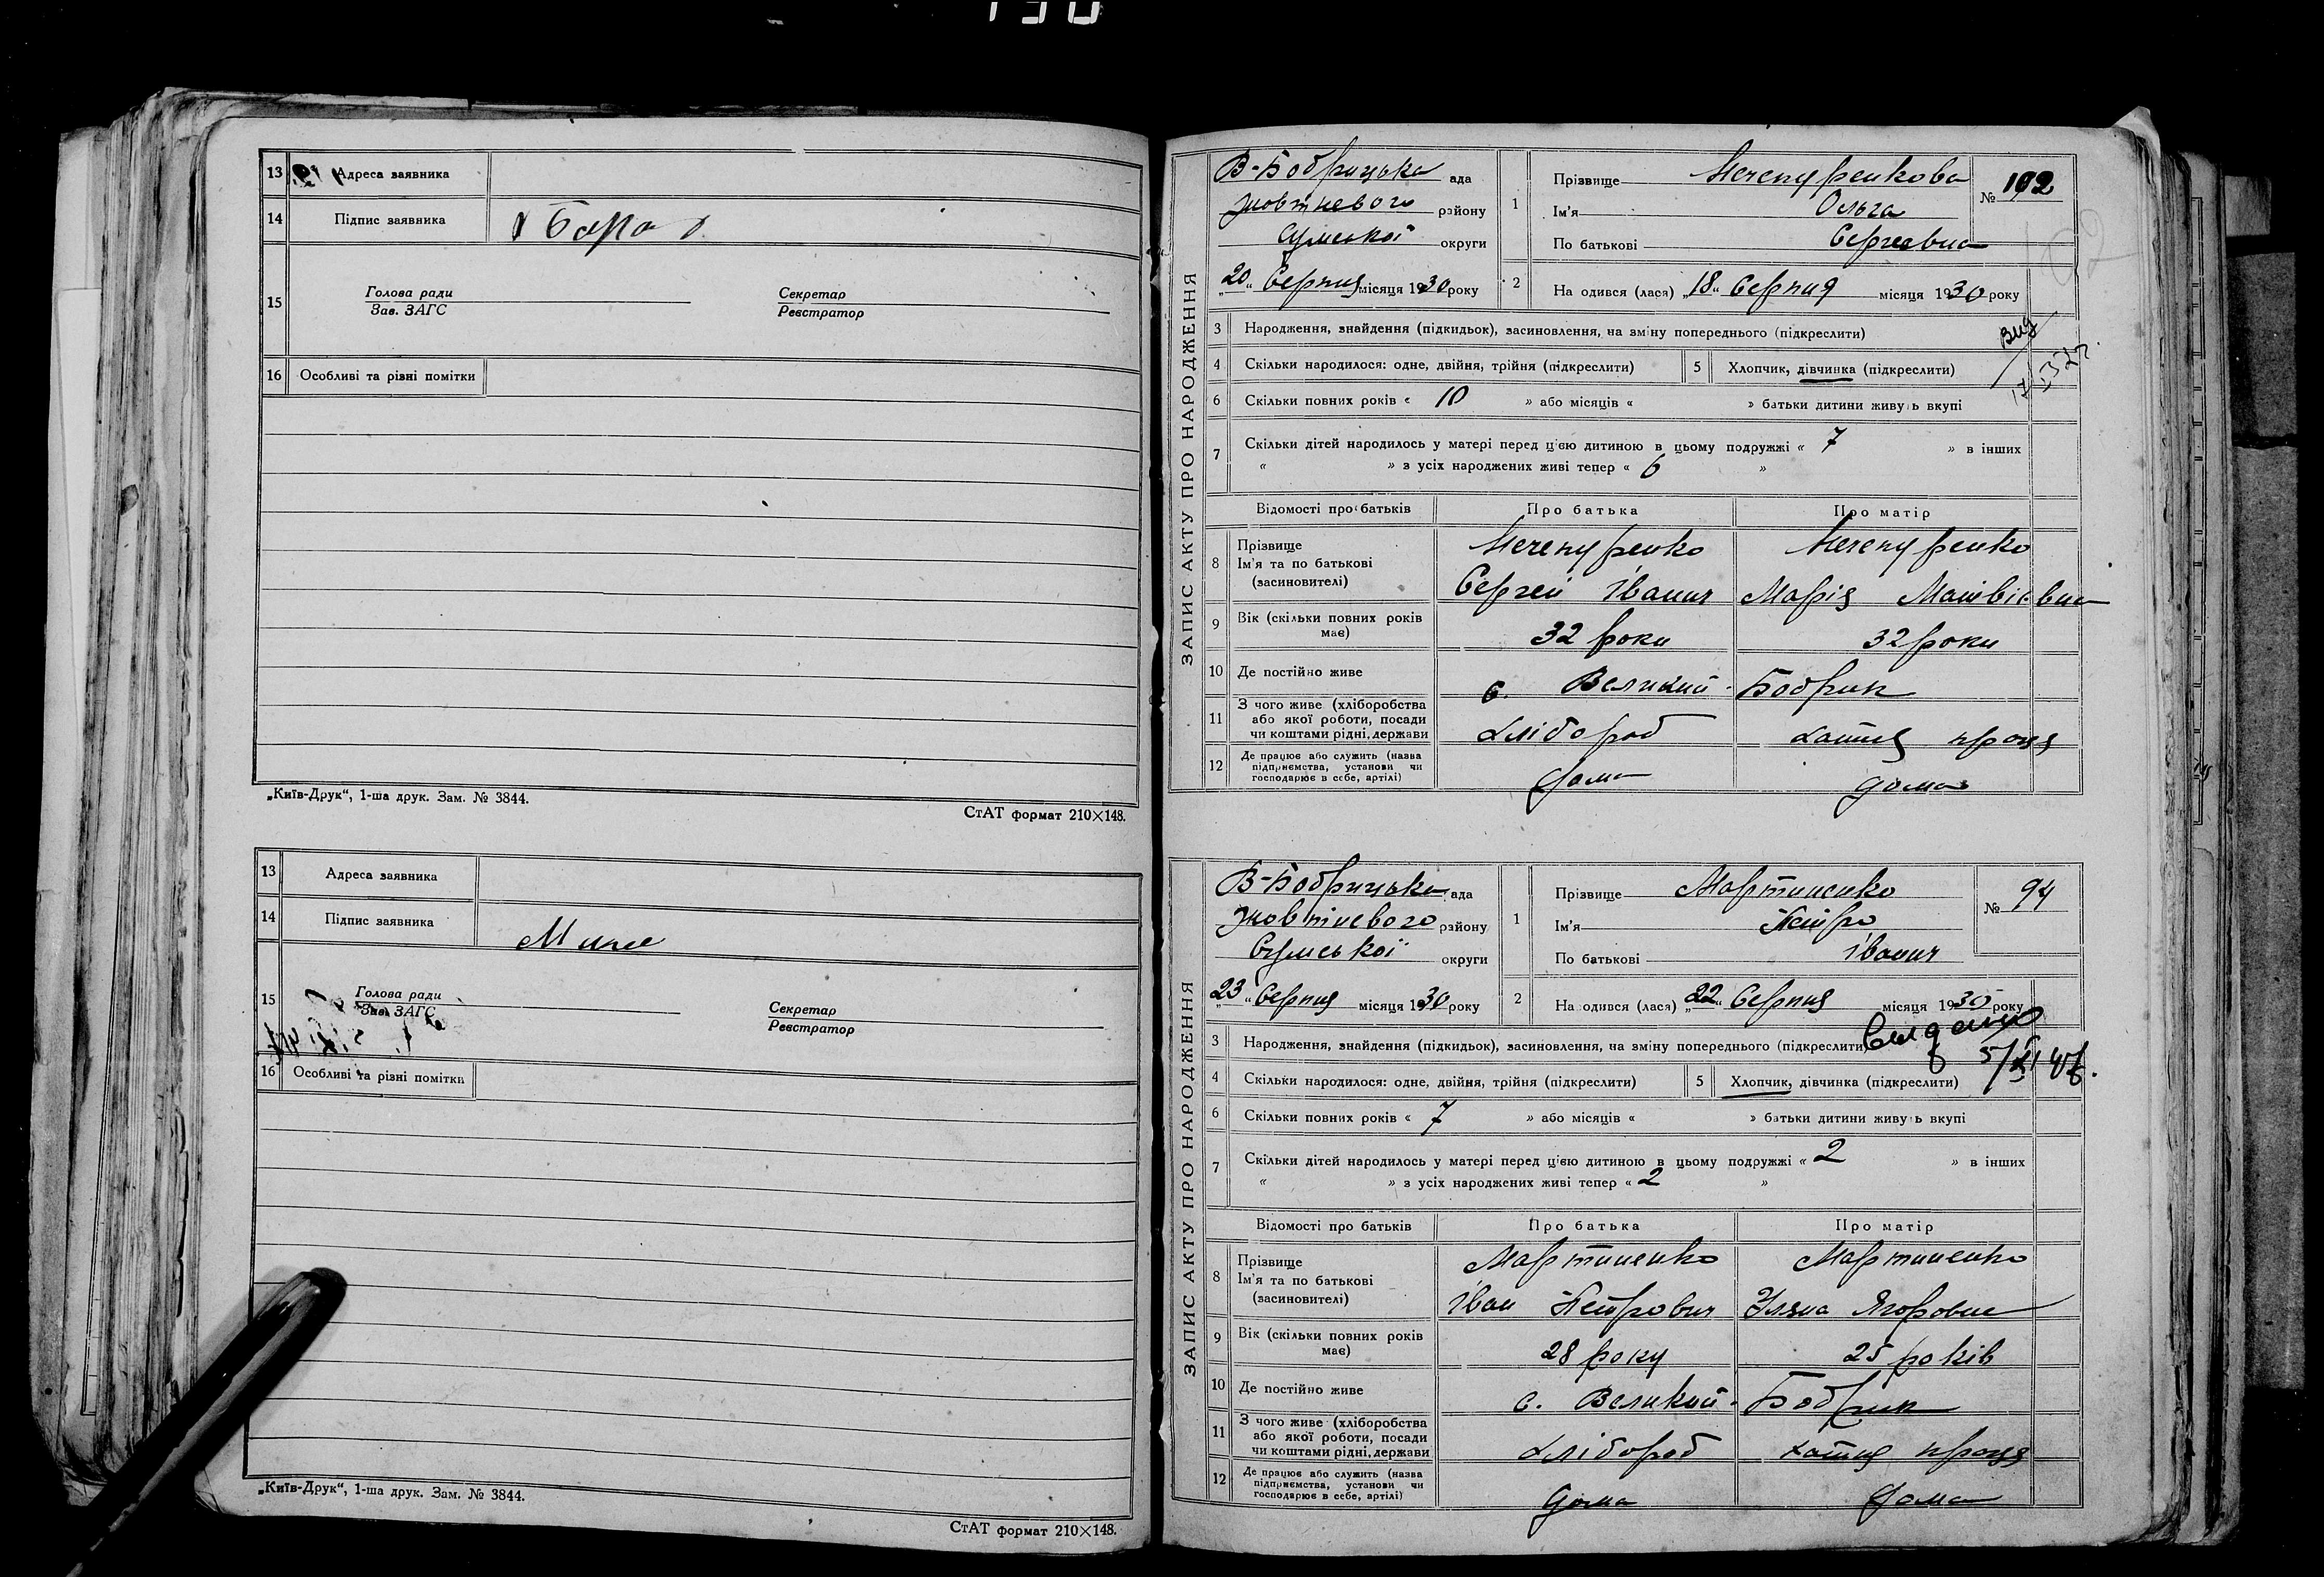 13 Адреса заявника
14 Підпис заявника
15 Голова ради
Зав. ЗАГС
Секретар
Реєстратор
16 Особливі та різні помітки
„Київ-Друк“, 1-ша друк. Зам. № 3844.
СтАТ формат 210×148.
13 Адреса заявника
14 Підпис заявника
15 Голова ради
Зав. ЗАГС
Секретар
Реєстратор
16 Особливі та різні помітки
„Київ-Друк“, 1-ша друк. Зам. № 3844.
СтАТ формат 210×148.
ЗАПИС АКТУ ПРО НАРОДЖЕННЯ
В-Бобрицька ада
Жовтневого району
Сумської округи
„20“ Серпня місяця 1930 року
1 Прізвище Нечепуренкова
Ім'я Ольга
По батькові Сергеевна
№ 192
2 На одився (лася) „18“ Серпня місяця 1930 року
3 Народження, знайдення (підкидьок), засиновлення, на зміну попереднього (підкреслити)
4 Скільки народилося: одне, двійня, трійня (підкреслити) 5 Хлопчик, дівчинка (підкреслити)
6 Скільки повних років « 10 » або місяців « » батьки дитини живуть вкупі
7 Скільки дітей народилось у матері перед цією дитиною в цьому подружжі « 7 » в інших
« » з усіх народжених живі тепер « 6 »
Відомості про батьків Про батька Про матір
8 Прізвище Нечепуренко Нечепуренко
Ім'я та по батькові
(засиновителі) Сергей Іванич Марія Матвієвна
9 Вік (скільки повних років має) 32 роки 32 роки
10 Де постійно живе с. Великий-Бобрик
11 З чого живе (хліборобства
або якої роботи, посади
чи коштами рідні, держави Хлібороб хатня праця
12 Де працює або служить (назва
підприємства, установи чи
господарює в себе, артілі) дома дома
ЗАПИС АКТУ ПРО НАРОДЖЕННЯ
В-Бобрицька ада
Жовтневого району
Сумської округи
„23“ Серпня місяця 1930 року
1 Прізвище Мартиненко
Ім'я Петро
По батькові Іванич
№ 94
2 На одився (лася) „22“ Серпня місяця 1930 року
3 Народження, знайдення (підкидьок), засиновлення, на зміну попереднього (підкреслити)
4 Скільки народилося: одне, двійня, трійня (підкреслити) 5 Хлопчик, дівчинка (підкреслити)
6 Скільки повних років « 7 » або місяців « » батьки дитини живуть вкупі
7 Скільки дітей народилось у матері перед цією дитиною в цьому подружжі « 2 » в інших
« » з усіх народжених живі тепер « 2 »
Відомості про батьків Про батька Про матір
8 Прізвище Мартиненко Мартиненко
Ім'я та по батькові
(засиновителі) Іван Петрович Уляна Ягоровна
9 Вік (скільки повних років має) 28 року 25 років
10 Де постійно живе с. Великий-Бобрик
11 З чого живе (хліборобства
або якої роботи, посади
чи коштами рідні, держави Хлібороб хатня праця
12 Де працює або служить (назва
підприємства, установи чи
господарює в себе, артілі) дома дома